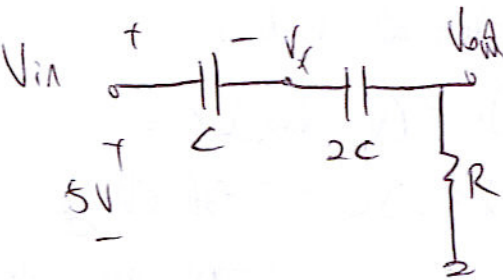 Vin + - Vx Vout
C 2C
+
5V
-
R